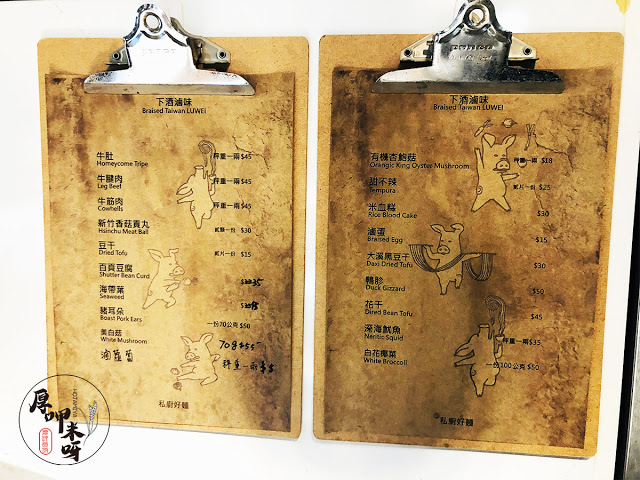 下酒滷味
Braised Taiwan LUWEI
牛肚 秤重一兩 $45
Homeycome Tripe
牛腱肉 秤重一兩 $45
Leg Beef
牛筋肉 秤重一兩 $45
Cowhells
新竹香菇貢丸 貳顆一份 $30
Hsinchu Meat Ball
豆干 貳片一份 $15
Dried Tofu
百頁豆腐 35
Shutter Bean Curd
海帶葉
Seaweed
豬耳朵 一份70公克 $50
Boast Pork Ears
美白菇 70g $55
White Mushroom
滷蘿蔔 秤重一兩 $5
私廚好麵
下酒滷味
Braised Taiwan LUWEI
有機杏鮑菇 秤重一兩 $18
Orangic King Oyster Mushroom
甜不辣 貳片一份 $25
Tempura
米血糕 $30
Rice Blood Cake
滷蛋 $15
Braised Egg
大溪黑豆干 $30
Daxi Dried Tofu
鴨胗 $50
Duck Gizzard
花干 $45
Dired Bean Tofu
深海魷魚 秤重一兩 $35
Neritic Squid
白花椰菜 一份100公克 $50
White Broccoli
私廚好麵
厚呷米呀
HOTAMIYA